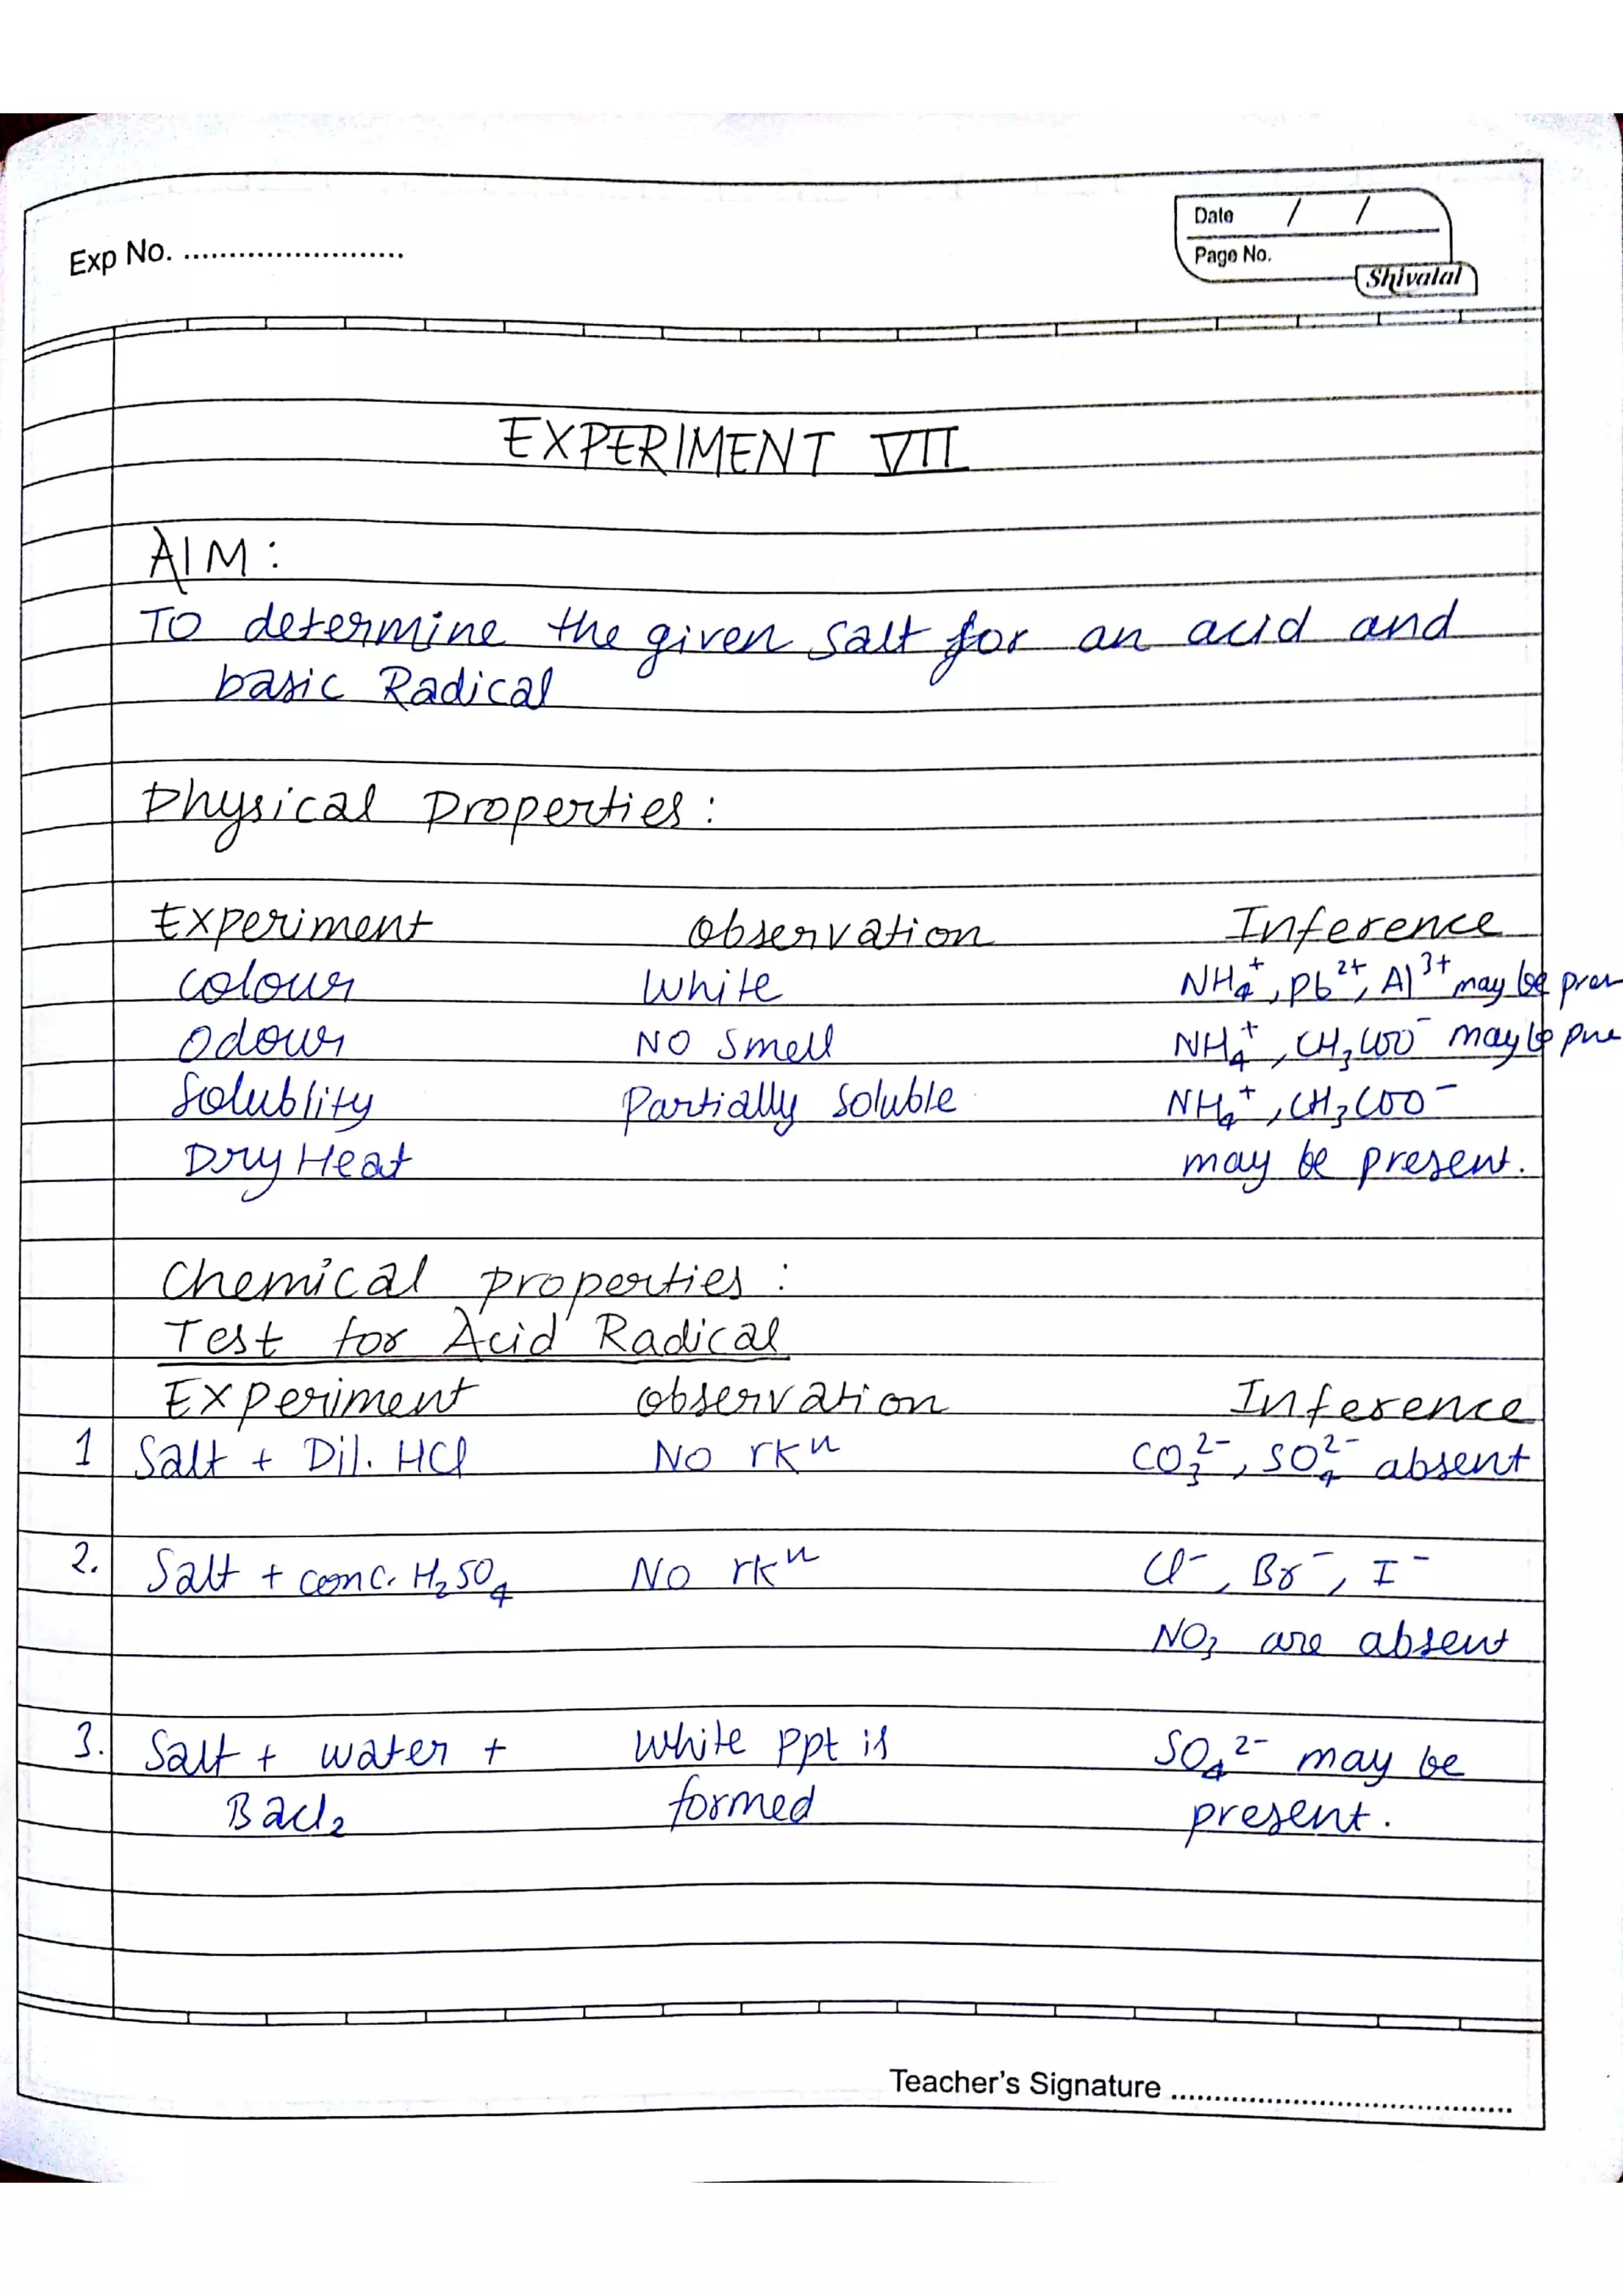 Exp No. ........................
Date / /
Page No.
Shivalal
EXPERIMENT VII
AIM:
To determine the given salt for an acid and
basic Radical
Physical Properties:
Experiment Observation Inference
Colour White NH4+, Pb2+, Al3+ may be pren
Odour No Smell NH4+, CH3COO- may be pre
Solublity Partially Soluble NH4+, CH3COO-
Dry Heat may be present.
Chemical properties:
Test for Acid Radical
Experiment Observation Inference
1 Salt + Dil. HCl No rxn CO3 2-, SO4 2- absent
2. Salt + conc. H2SO4 No rxn Cl-, Br-, I-
NO3 are absent
3. Salt + water + White ppt is SO4 2- may be
Bacl2 formed present.
Teacher's Signature ........................................